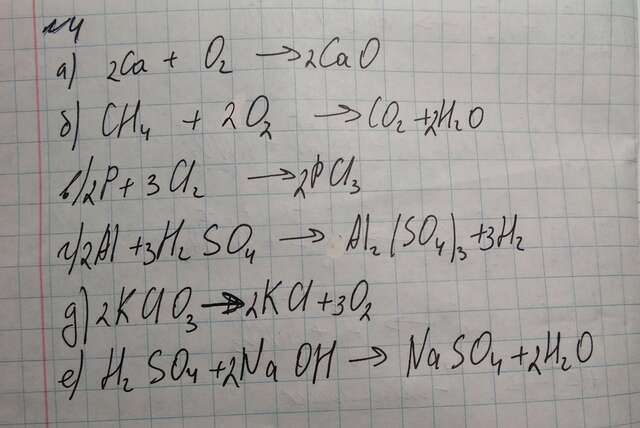 №4
а) 2Ca + O₂ → 2CaO
б) CH₄ + 2O₂ → CO₂ + 2H₂O
в) 2P + 3Cl₂ → 2PCl₃
г) 2Al + 3H₂SO₄ → Al₂(SO₄)₃ + 3H₂
д) 2KClO₃ → 2KCl + 3O₂
е) H₂SO₄ + 2NaOH → NaSO₄ + 2H₂O